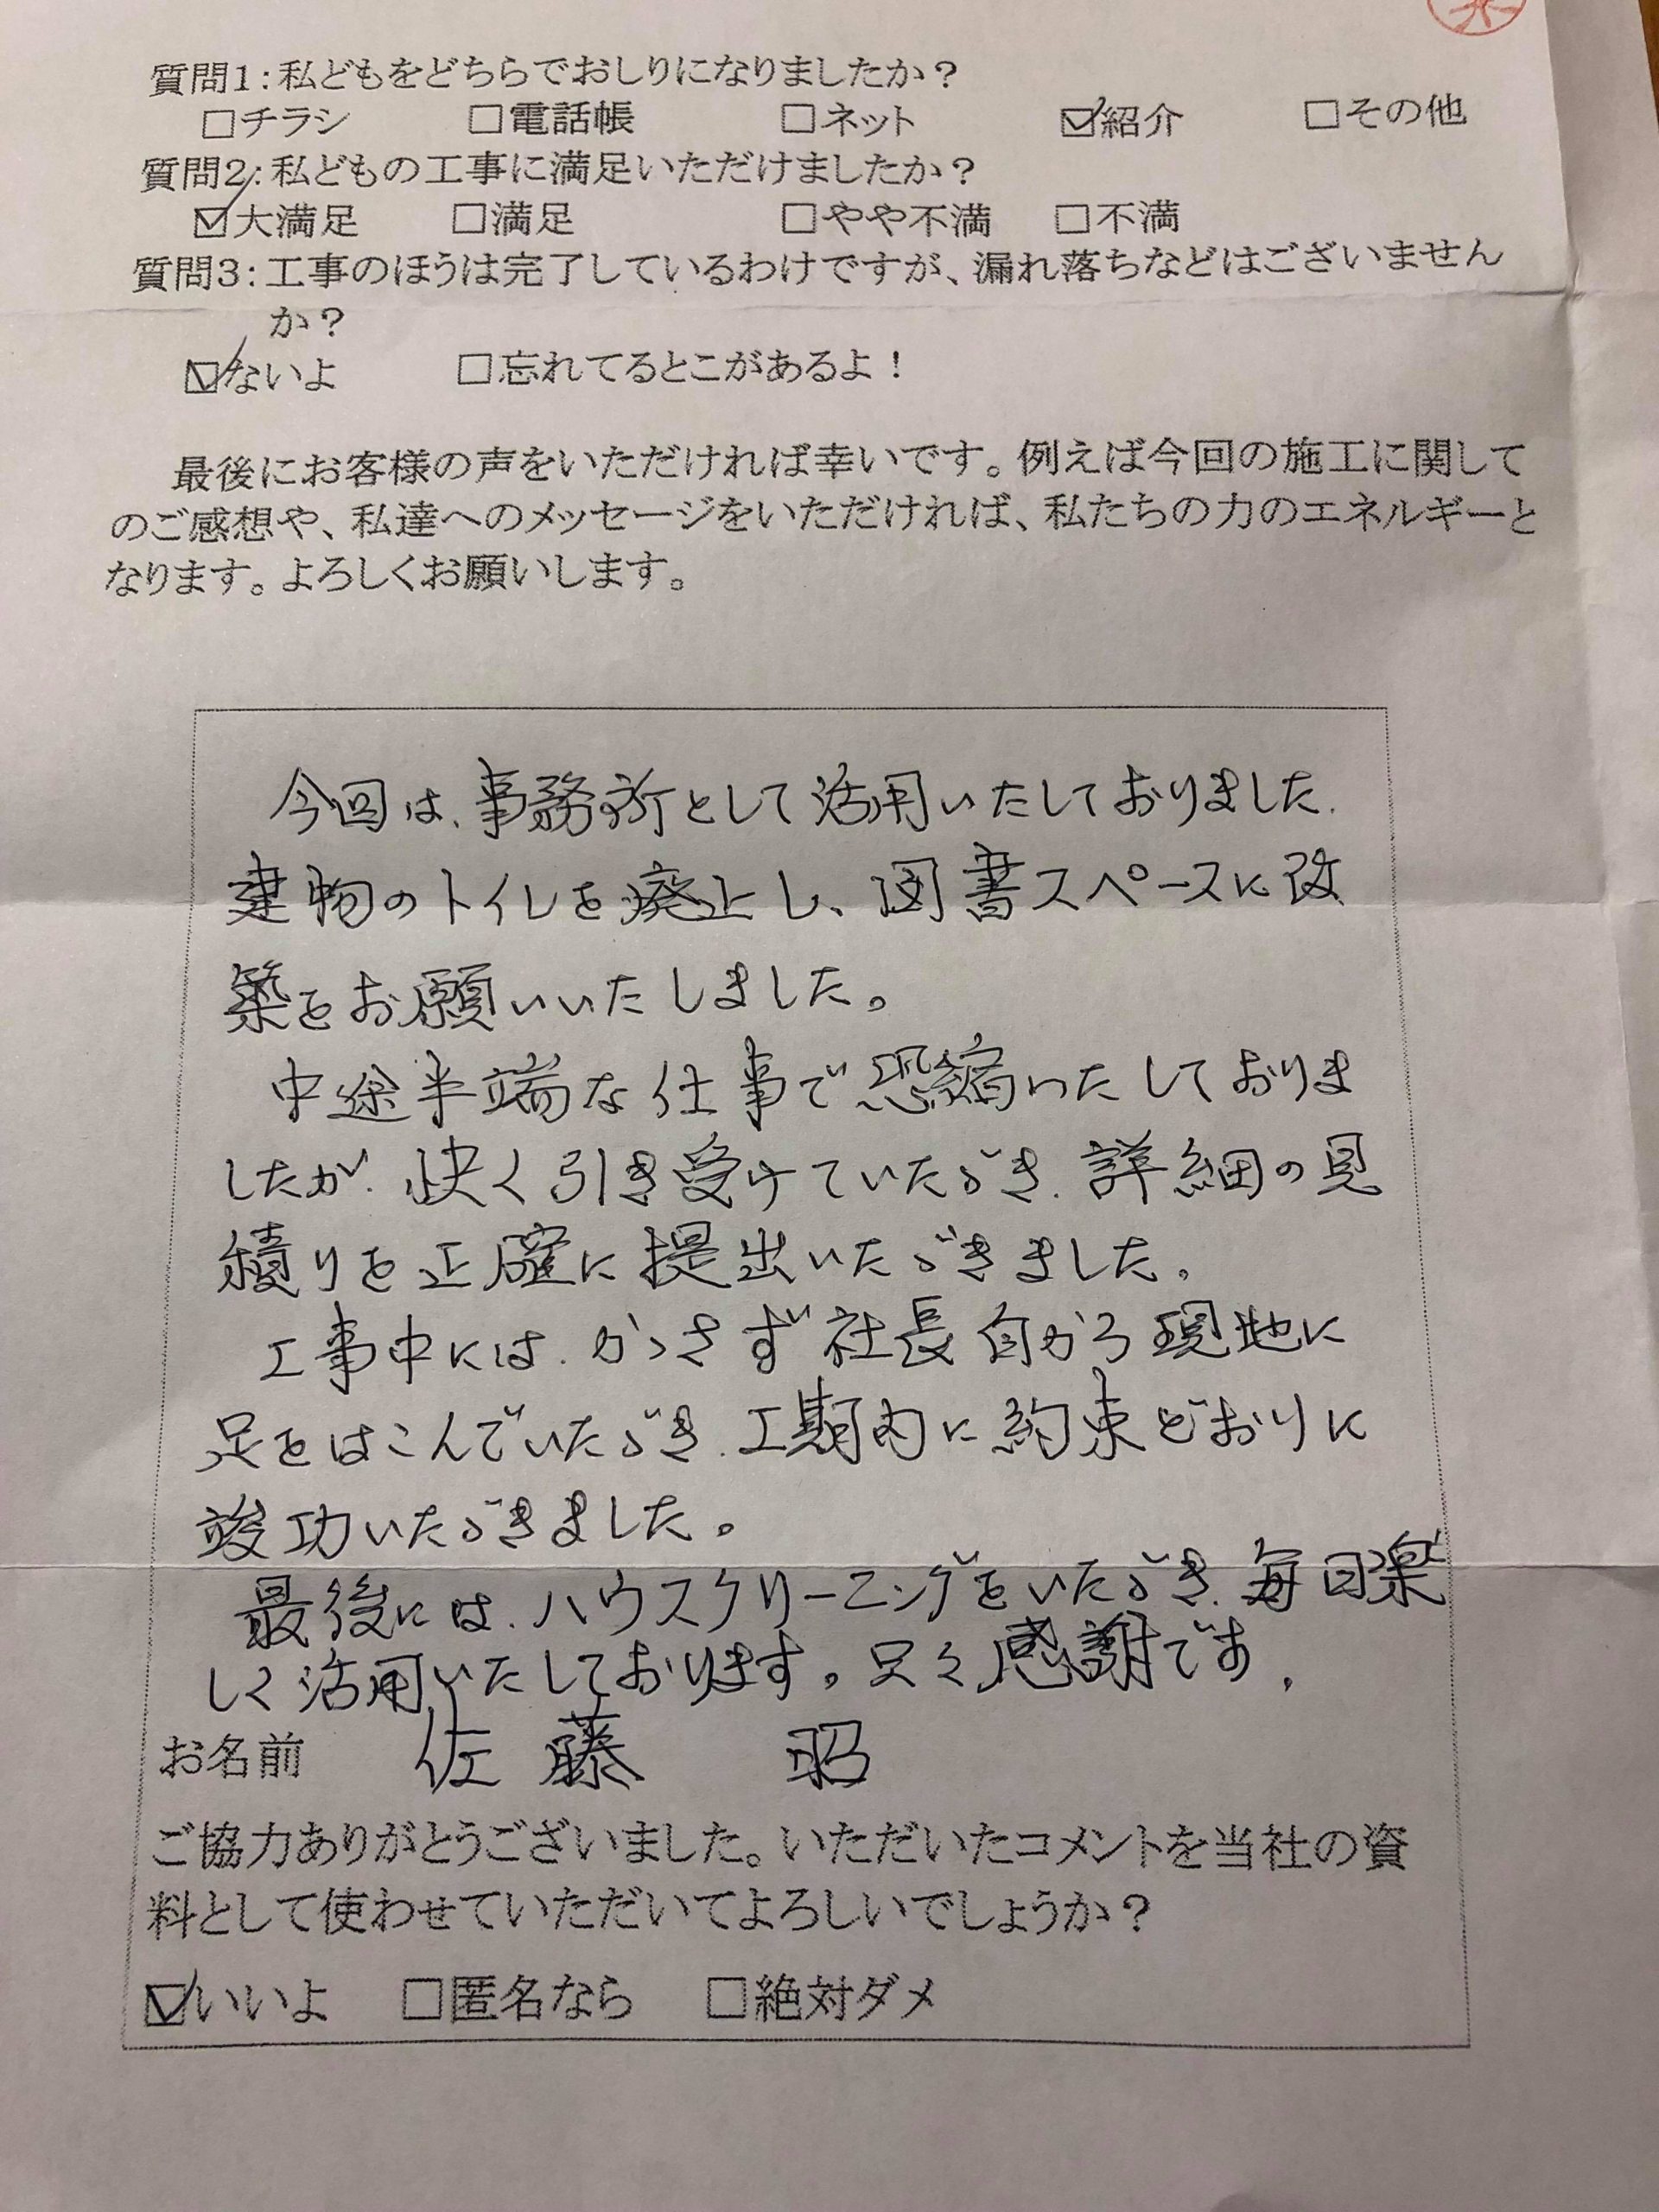 質問1：私どもをどちらでおしりになりましたか？
□チラシ □電話帳 □ネット ☑紹介 □その他
質問2：私どもの工事に満足いただけましたか？
☑大満足 □満足 □やや不満 □不満
質問3：工事のほうは完了しているわけですが、漏れ落ちなどはございません
か？
☑ないよ □忘れてるとこがあるよ！
最後にお客様の声をいただければ幸いです。例えば今回の施工に関して
のご感想や、私達へのメッセージをいただければ、私たちの力のエネルギーと
なります。よろしくお願いします。
今回は、事務所として活用いたしておりました、
建物のトイレを廃止し、図書スペースに改
築をお願いいたしました。
中途半端な仕事で恐縮いたしておりま
したが、快く引き受けていただき、詳細の見
積りを正確に提出いただきました。
工事中には、かゝさず社長自から現地に
足をはこんでいただき、工期内に約束どおりに
竣功いただきました。
最後には、ハウスクリーニングをいただき、毎日楽
しく活用いたしております。只々感謝です。
お名前 佐藤 昭
ご協力ありがとうございました。いただいたコメントを当社の資
料として使わせていただいてよろしいでしょうか？
☑いいよ □匿名なら □絶対ダメ